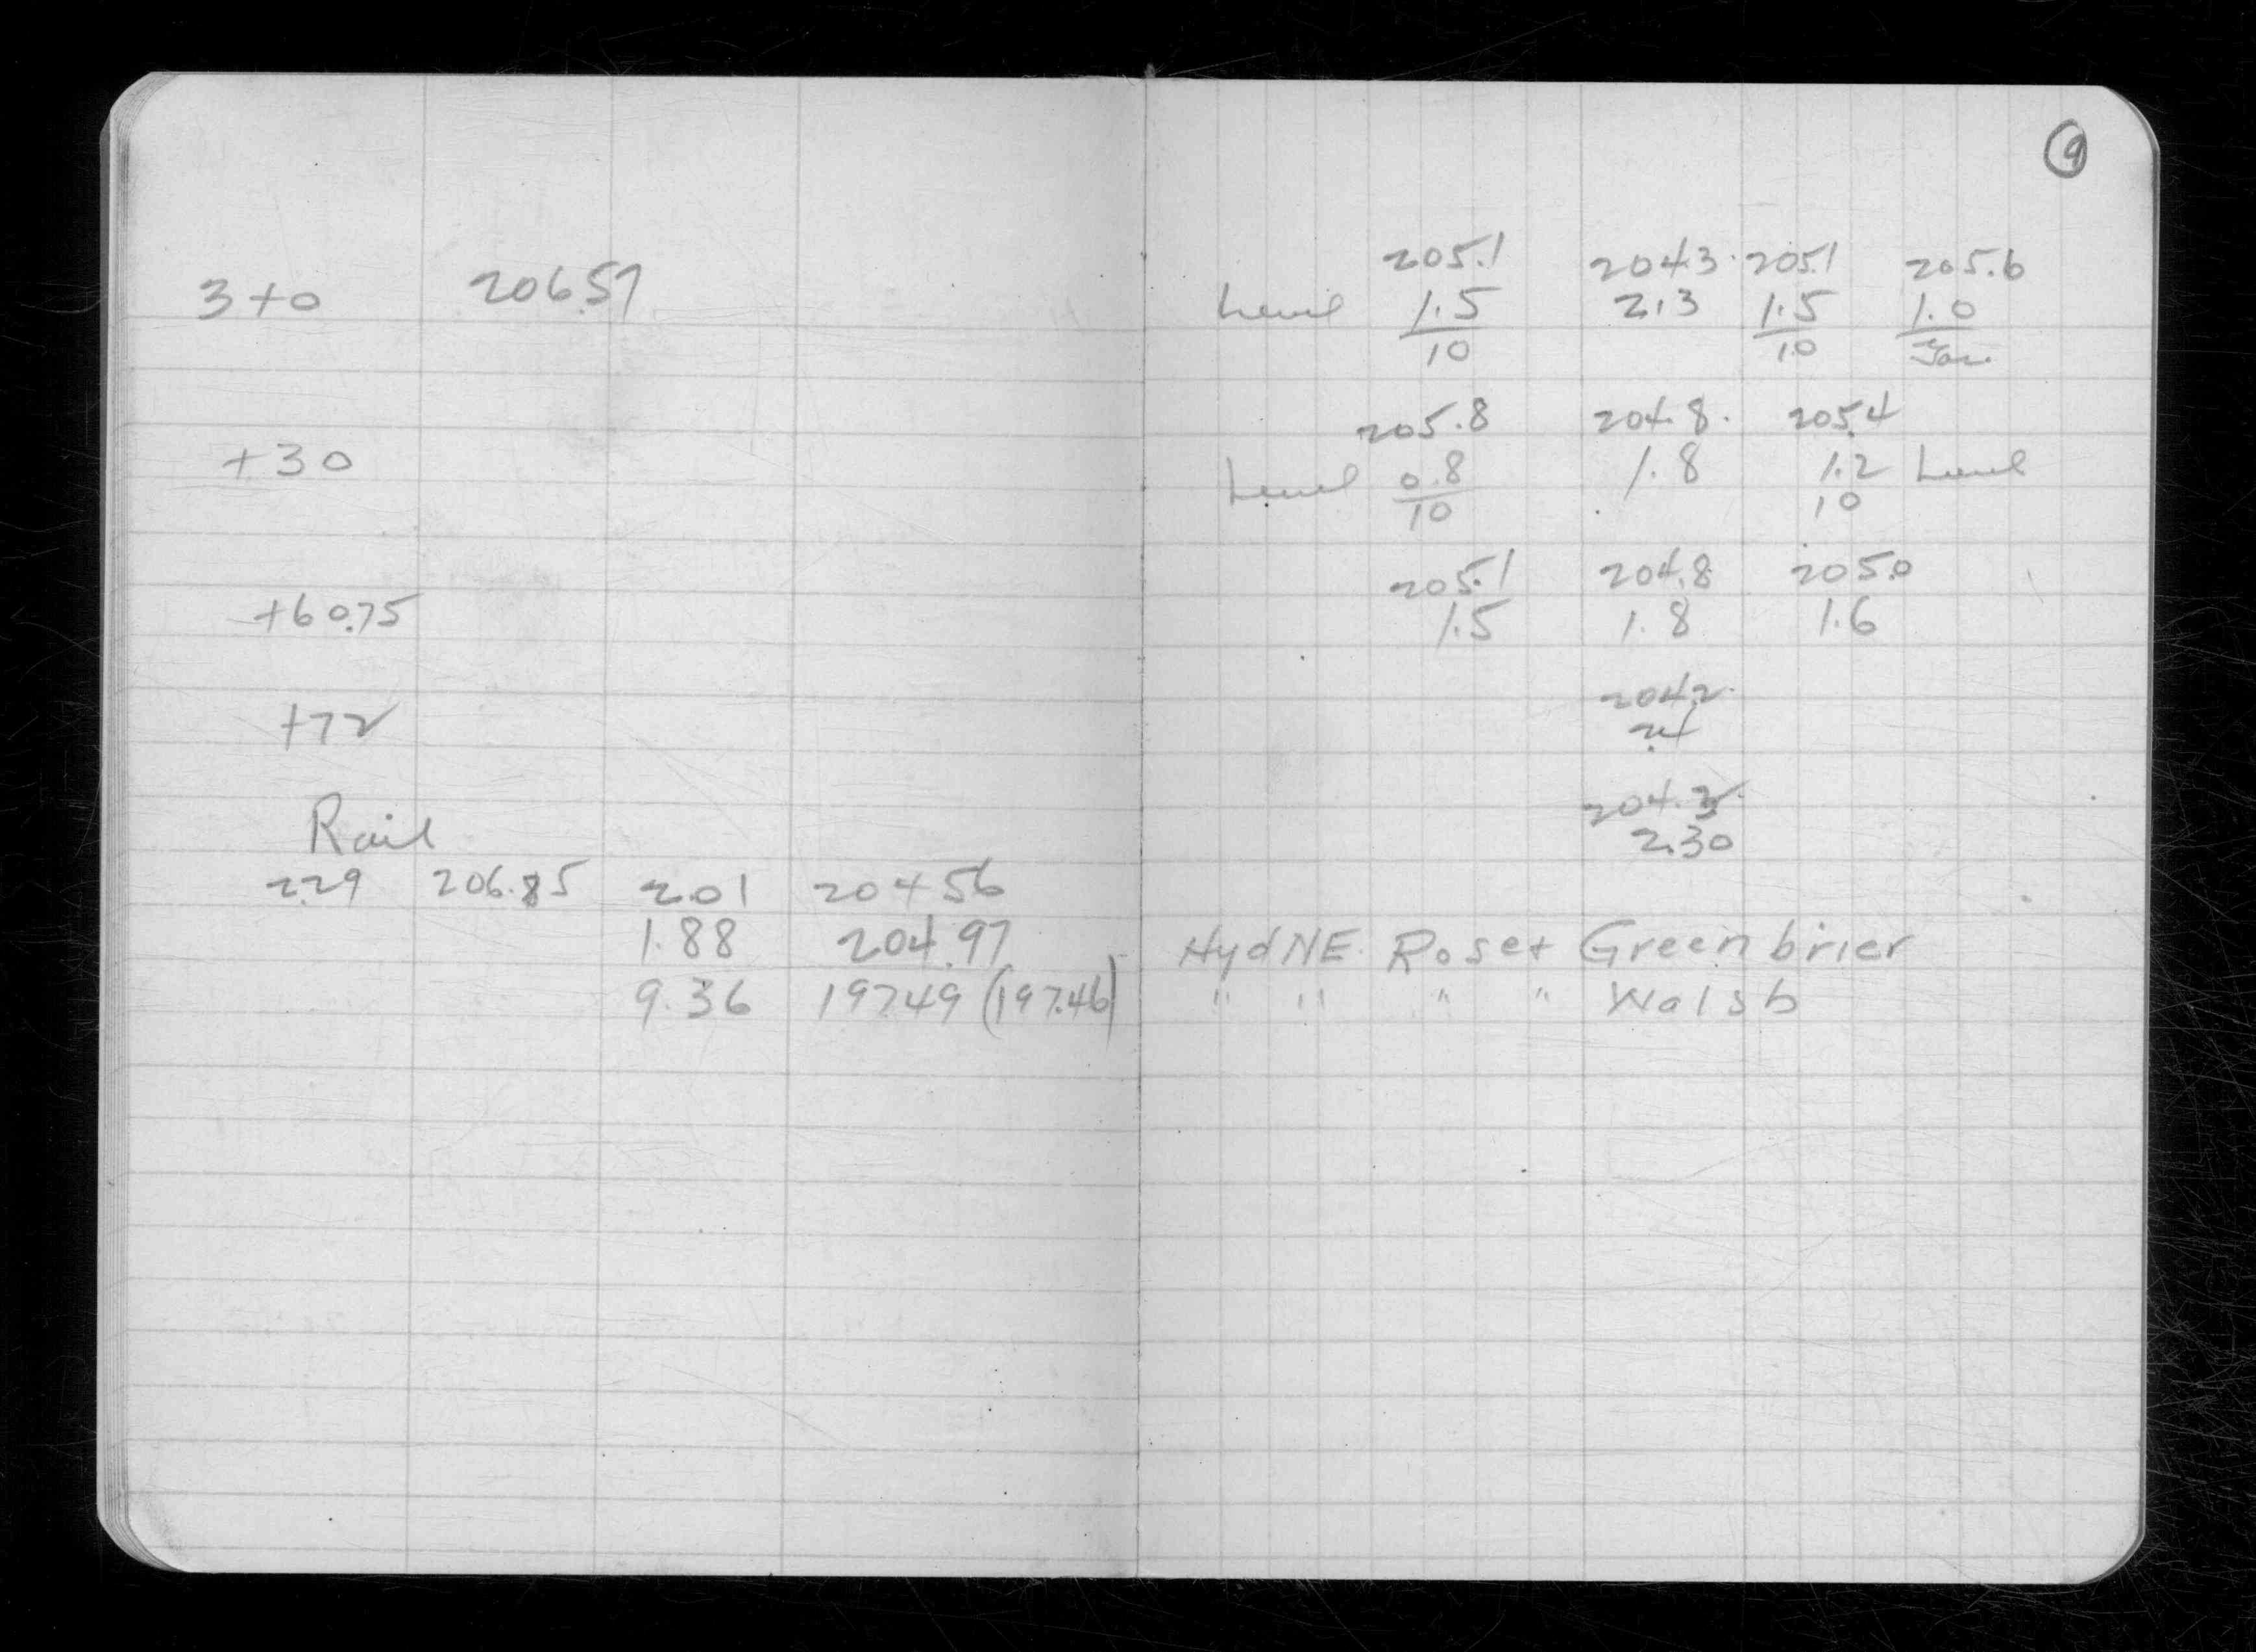 9
205.1 204.3 205.1 205.6
3+0 206.57 Level 1.5 2.3 1.5 1.0
10 10
205.8 204.8 205.4
+30 Level 0.8 1.8 1.2 Level
10 10
205.1 204.8 205.0
+60.75 1.5 1.8 1.6
204.2
+72 2.4
204.3
Rail 2.30
2.29 206.85 2.01 204.56
1.88 204.97 Hyd NE Rose + Greenbrier
9.36 197.49 (197.46) " " " " Walsh